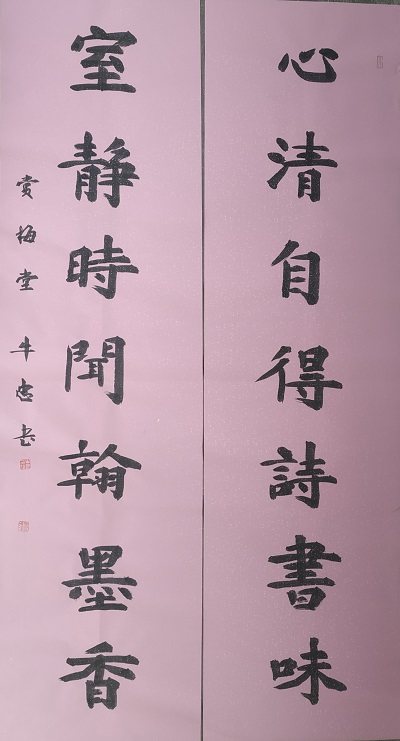 心清自得詩書味
室靜時聞翰墨香
賞梅堂 牛忠书